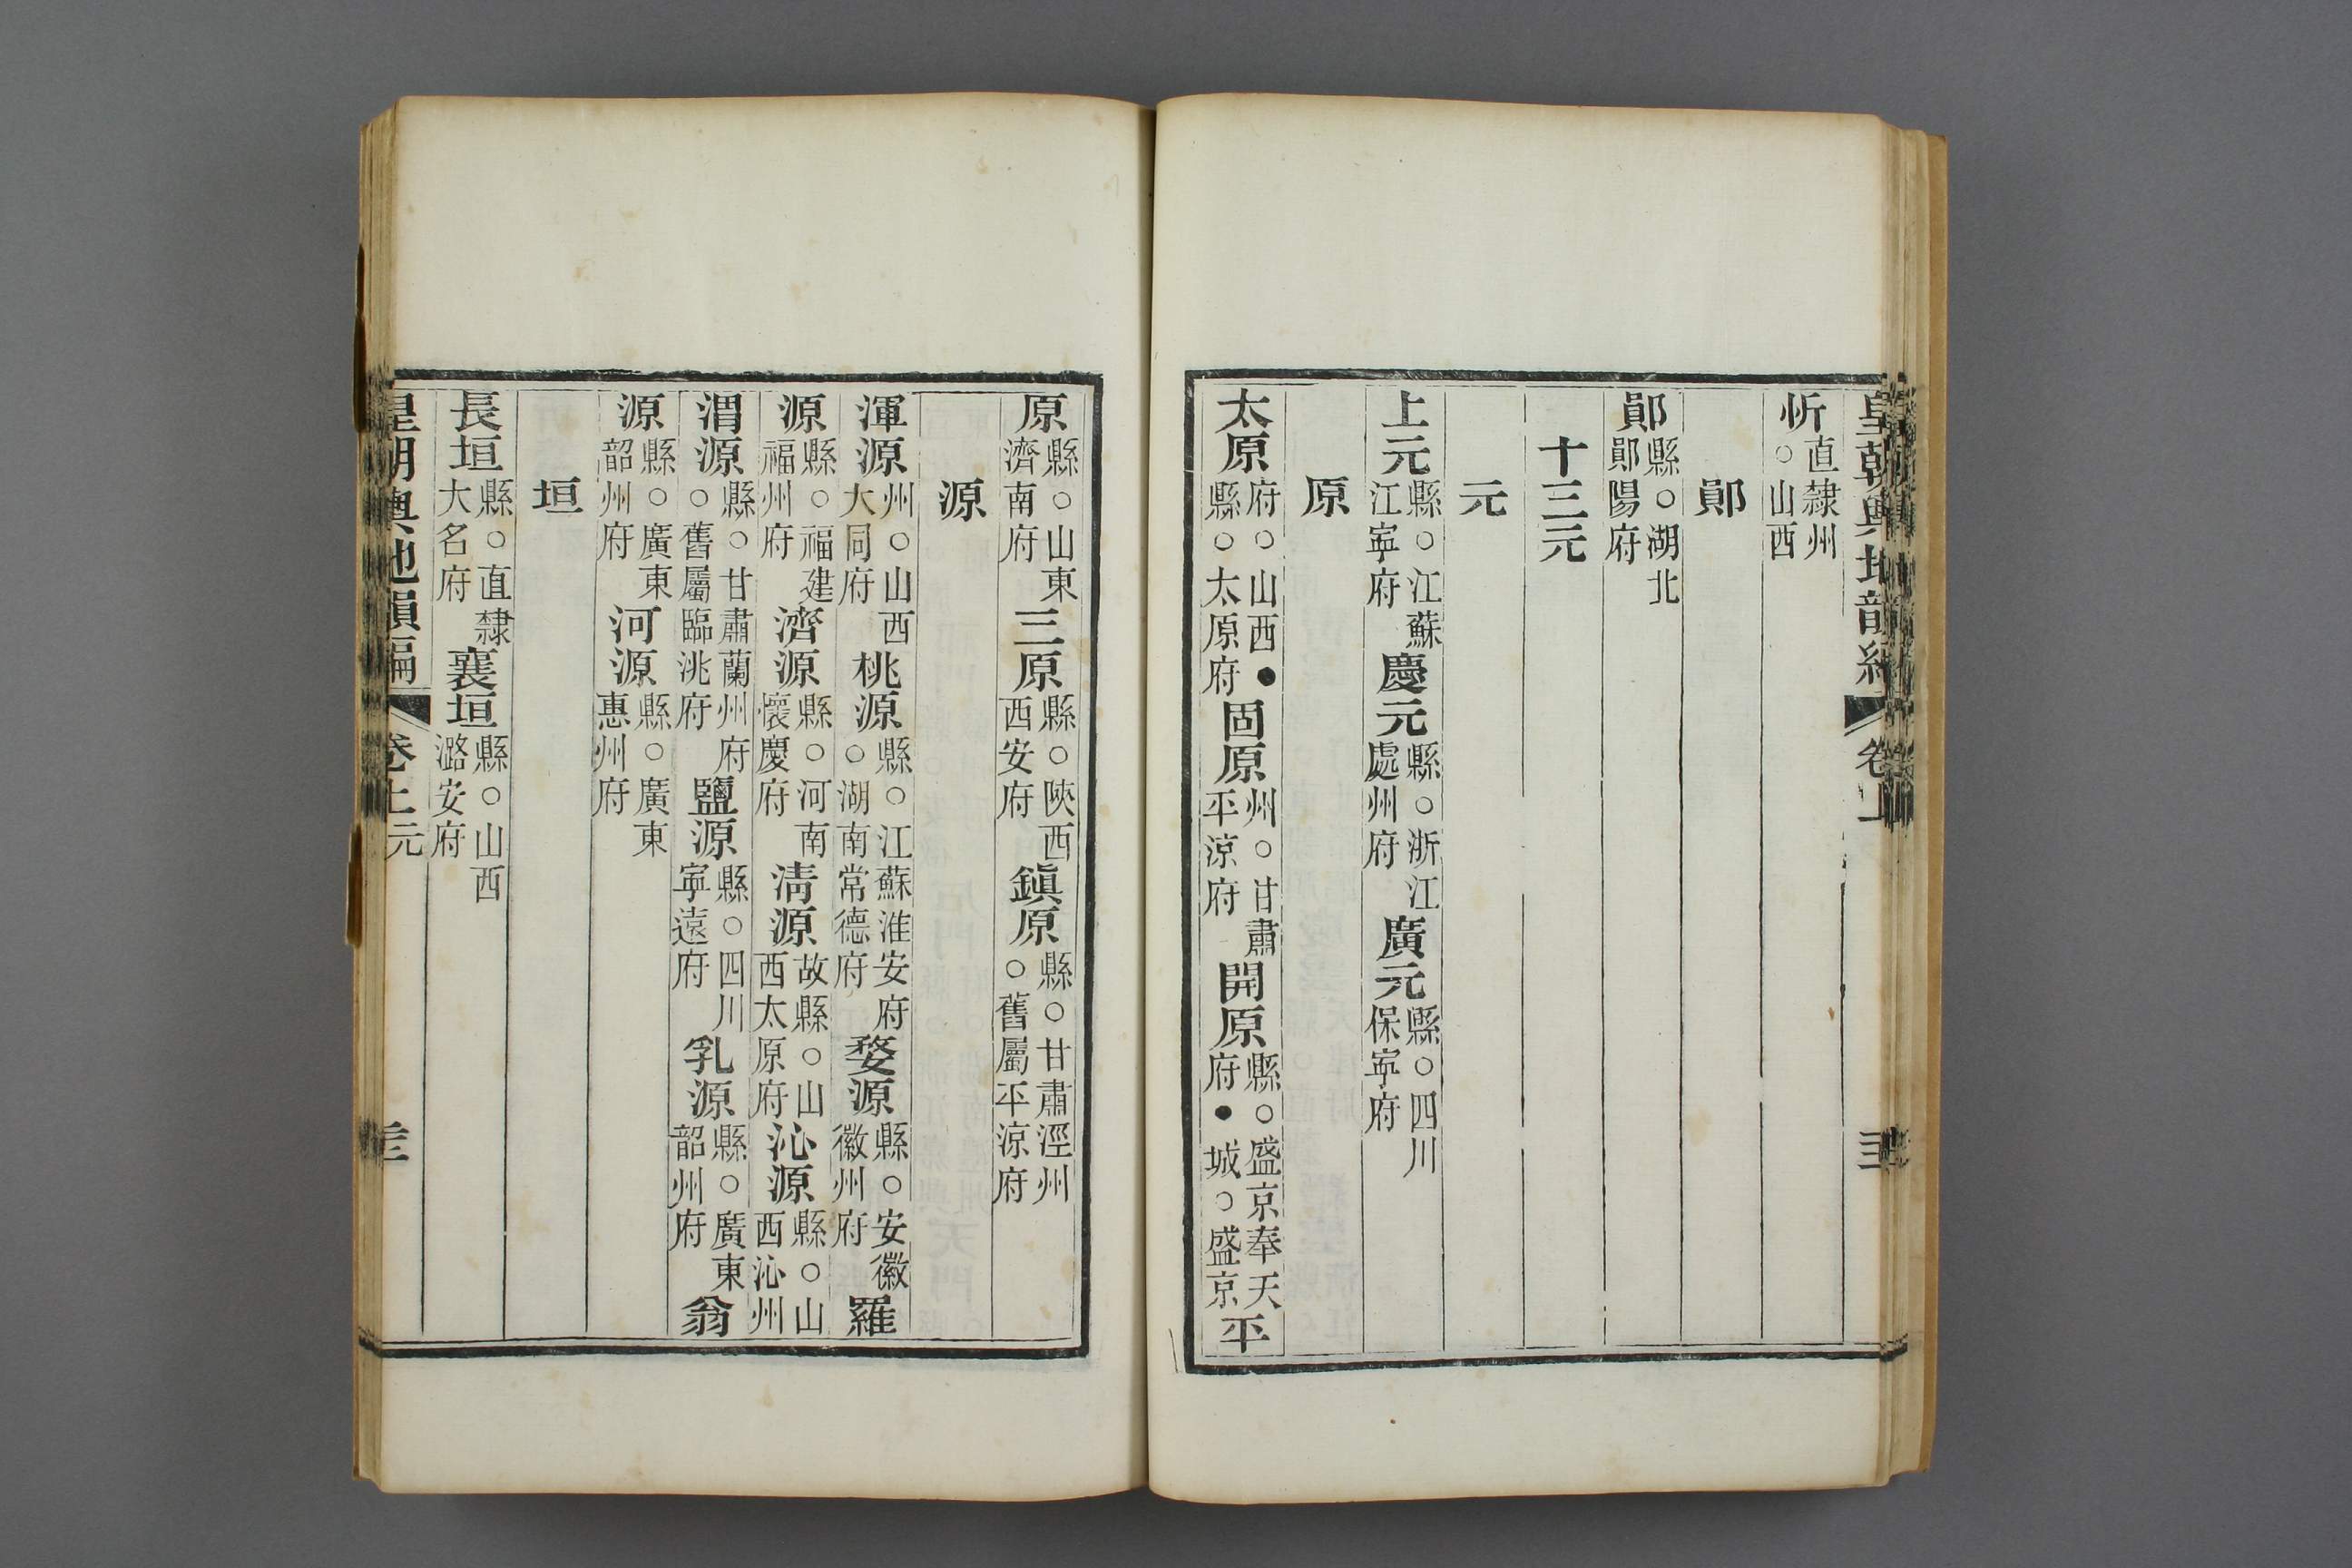 皇朝輿地韻編 卷上
忻直隸州○山西
鄖
鄖縣○湖北鄖陽府
十三元
元
上元縣○江蘇江寧府慶元縣○浙江處州府廣元縣○四川保寧府
原
太原府○山西●縣○太原府固原州○甘肅平涼府開原縣○盛京奉天府●城○盛京平
原縣○山東濟南府三原縣○陝西西安府鎮原縣○甘肅涇州○舊屬平涼府
源
渾源州○山西大同府桃源縣○江蘇淮安府○湖南常德府婺源縣○安徽徽州府羅
源縣○福建福州府濟源縣○河南懷慶府清源故縣○山西太原府沁源縣○山西沁州
渭源縣○甘肅蘭州府○舊屬臨洮府鹽源縣○四川寧遠府乳源縣○廣東韶州府翁
源縣○廣東韶州府河源縣○廣東惠州府
垣
長垣縣○直隸大名府襄垣縣○山西潞安府
皇朝輿地韻編 卷上 元